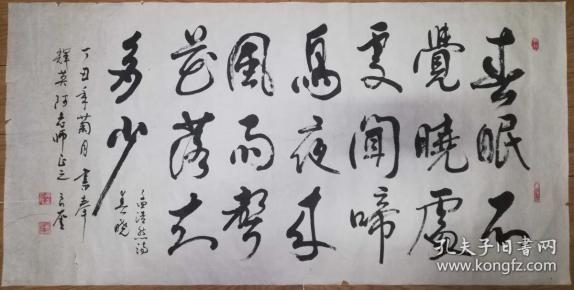 春眠不
覺曉處
處聞啼
鳥夜来
風雨聲
花落知
多少
孟浩然詩
春晓
丁丑年菊月書奉
輝英阿老师正之
孔夫子旧书网
www.kongfz.com